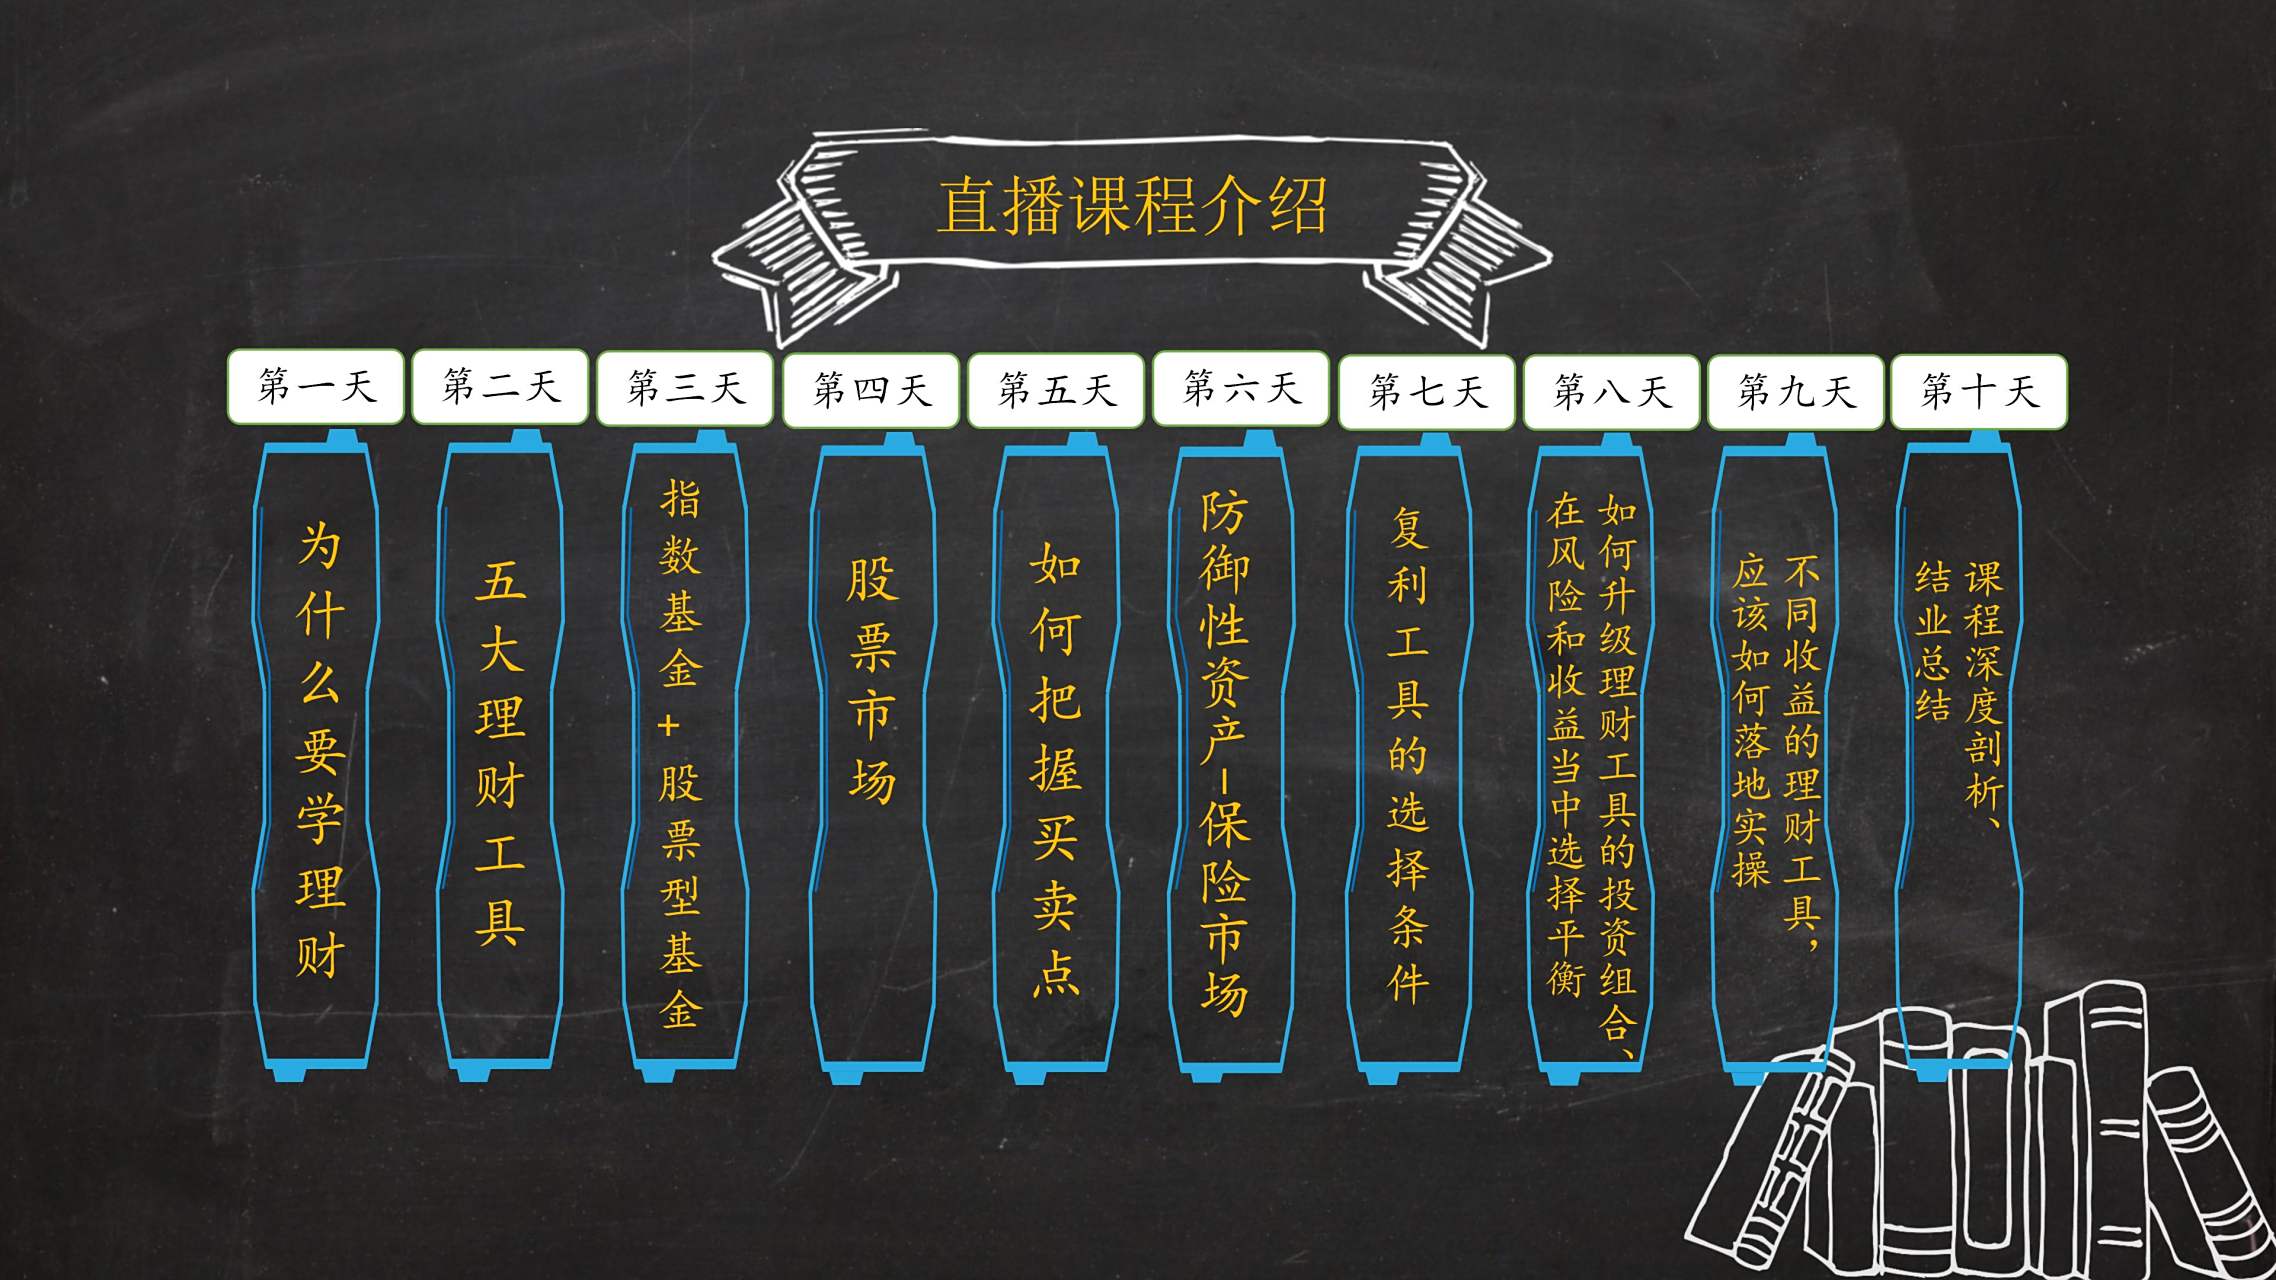 直播课程介绍
第一天
第二天
第三天
第四天
第五天
第六天
第七天
第八天
第九天
第十天
为什么要学理财
五大理财工具
指数基金+股票型基金
股票市场
如何把握买卖点
防御性资产-保险市场
复利工具的选择条件
如何升级理财工具的投资组合、
在风险和收益当中选择平衡
不同收益的理财工具，
应该如何落地实操
课程深度剖析、
结业总结